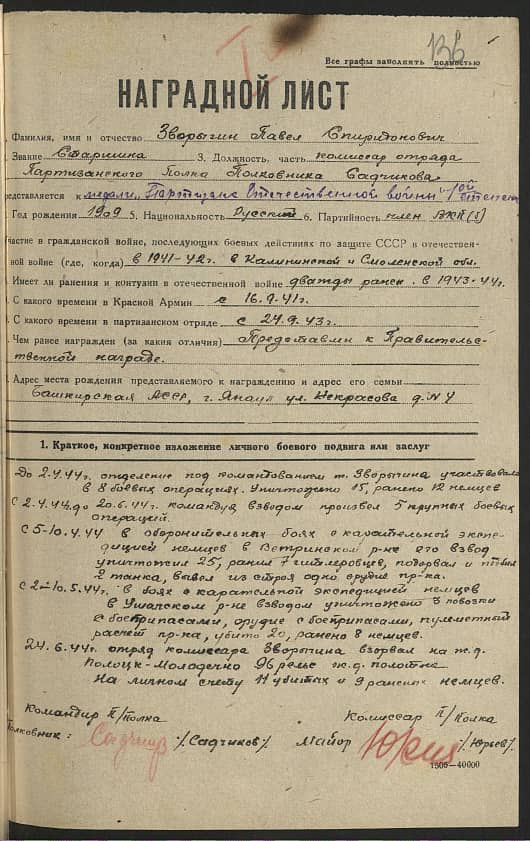 136
Все графы заполнять полностью
НАГРАДНОЙ ЛИСТ
Фамилия, имя и отчество Зворыгин Павел Спиридонович
Звание Старшина 3. Должность, часть комиссар отряда
Партизанского Полка Полковника Садчикова
редставляется к медали "Партизану Отечественной войны" 1ой степени
Год рождения 1909 5. Национальность Русский 6. Партийность член ВКП(б)
частие в гражданской войне, последующих боевых действиях по защите СССР в отечествен-
ной войне (где, когда) в 1941-42г. в Калининской и Смоленской обл.
Имеет ли ранения и контузии в отечественной войне дважды ранен. в 1943-44г.
С какого времени в Красной Армии с 16.9.41г.
С какого времени в партизанском отряде с 24.9.43г.
Чем ранее награжден (за какия отличия) Представлен к Правительс-
твенной награде.
Адрес места рождения представляемого к награждению и адрес его семьи
Башкирская АССР, г. Янаул ул. Некрасова д. N 4
1. Краткое, конкретное изложение личного боевого подвига или заслуг
До 2.4.44г. отделение под командованием т. Зворыгина участвовало
в 8 боевых операциях. Уничтожено 15, ранено 12 немцев
С 2.4.44г. до 20.6.44г. командуя взводом произвел 5 крупных боевых
операций.
С 5-10.4.44 в оборонительных боях с карательной экспе-
дицией немцев в Ветринском р-не его взвод
уничтожил 25, ранил 7 гитлеровцев, подорвал и
2 танка, вывел из строя одно орудие пр-ка.
С 2-10.5.44г. в боях с карательной экспедицией немцев
в Ушачском р-не взводом уничтожено 3 повозки
с боеприпасами, орудие с боеприпасами, пулеметный
расчет пр-ка, убито 20, ранено 8 немцев.
24.6.44г. отряд комиссара Зворыгина взорвал на ж.д.
Полоцк-Молодечно 96 рельс ж.д. полотна
На личном счету 11 убитых и 9 раненых немцев.
Командир П/Полка Комиссар П/Полка
олковник: /Садчиков/ Майор /Юрьев/
1500—40000